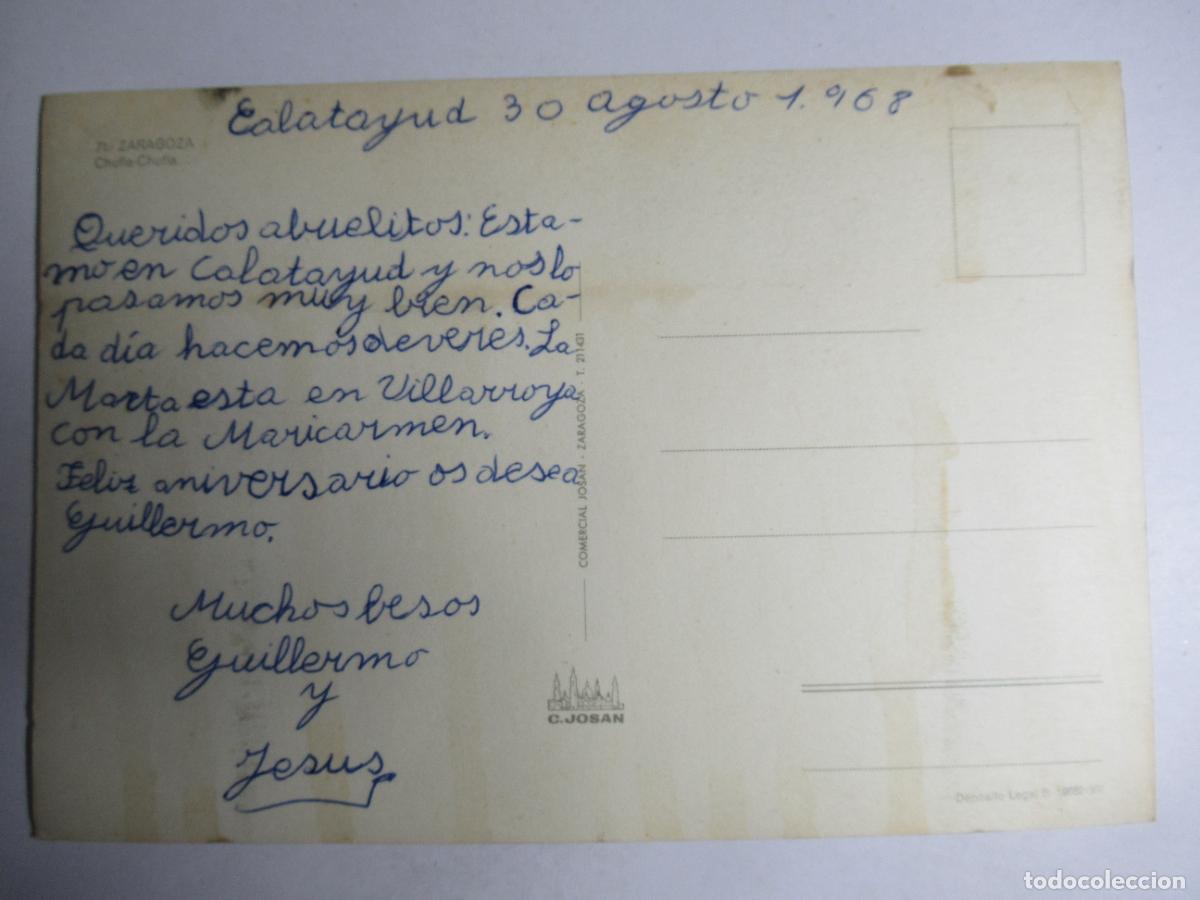 Calatayud 30 Agosto 1.968
ZARAGOZA
Chufla-Chufla
Queridos abuelitos: Esta-
mo en Calatayud y nos lo
pasamos muy bien. Ca-
da día hacemos deveres. La
Marta esta en Villarroya
con la Maricarmen.
Feliz aniversario os desea
Guillermo.
Muchos besos
Guillermo
y
Jesus
COMERCIAL JOSAN - ZARAGOZA - T. 211431
C. JOSAN
Depósito Legal B.
todocoleccion